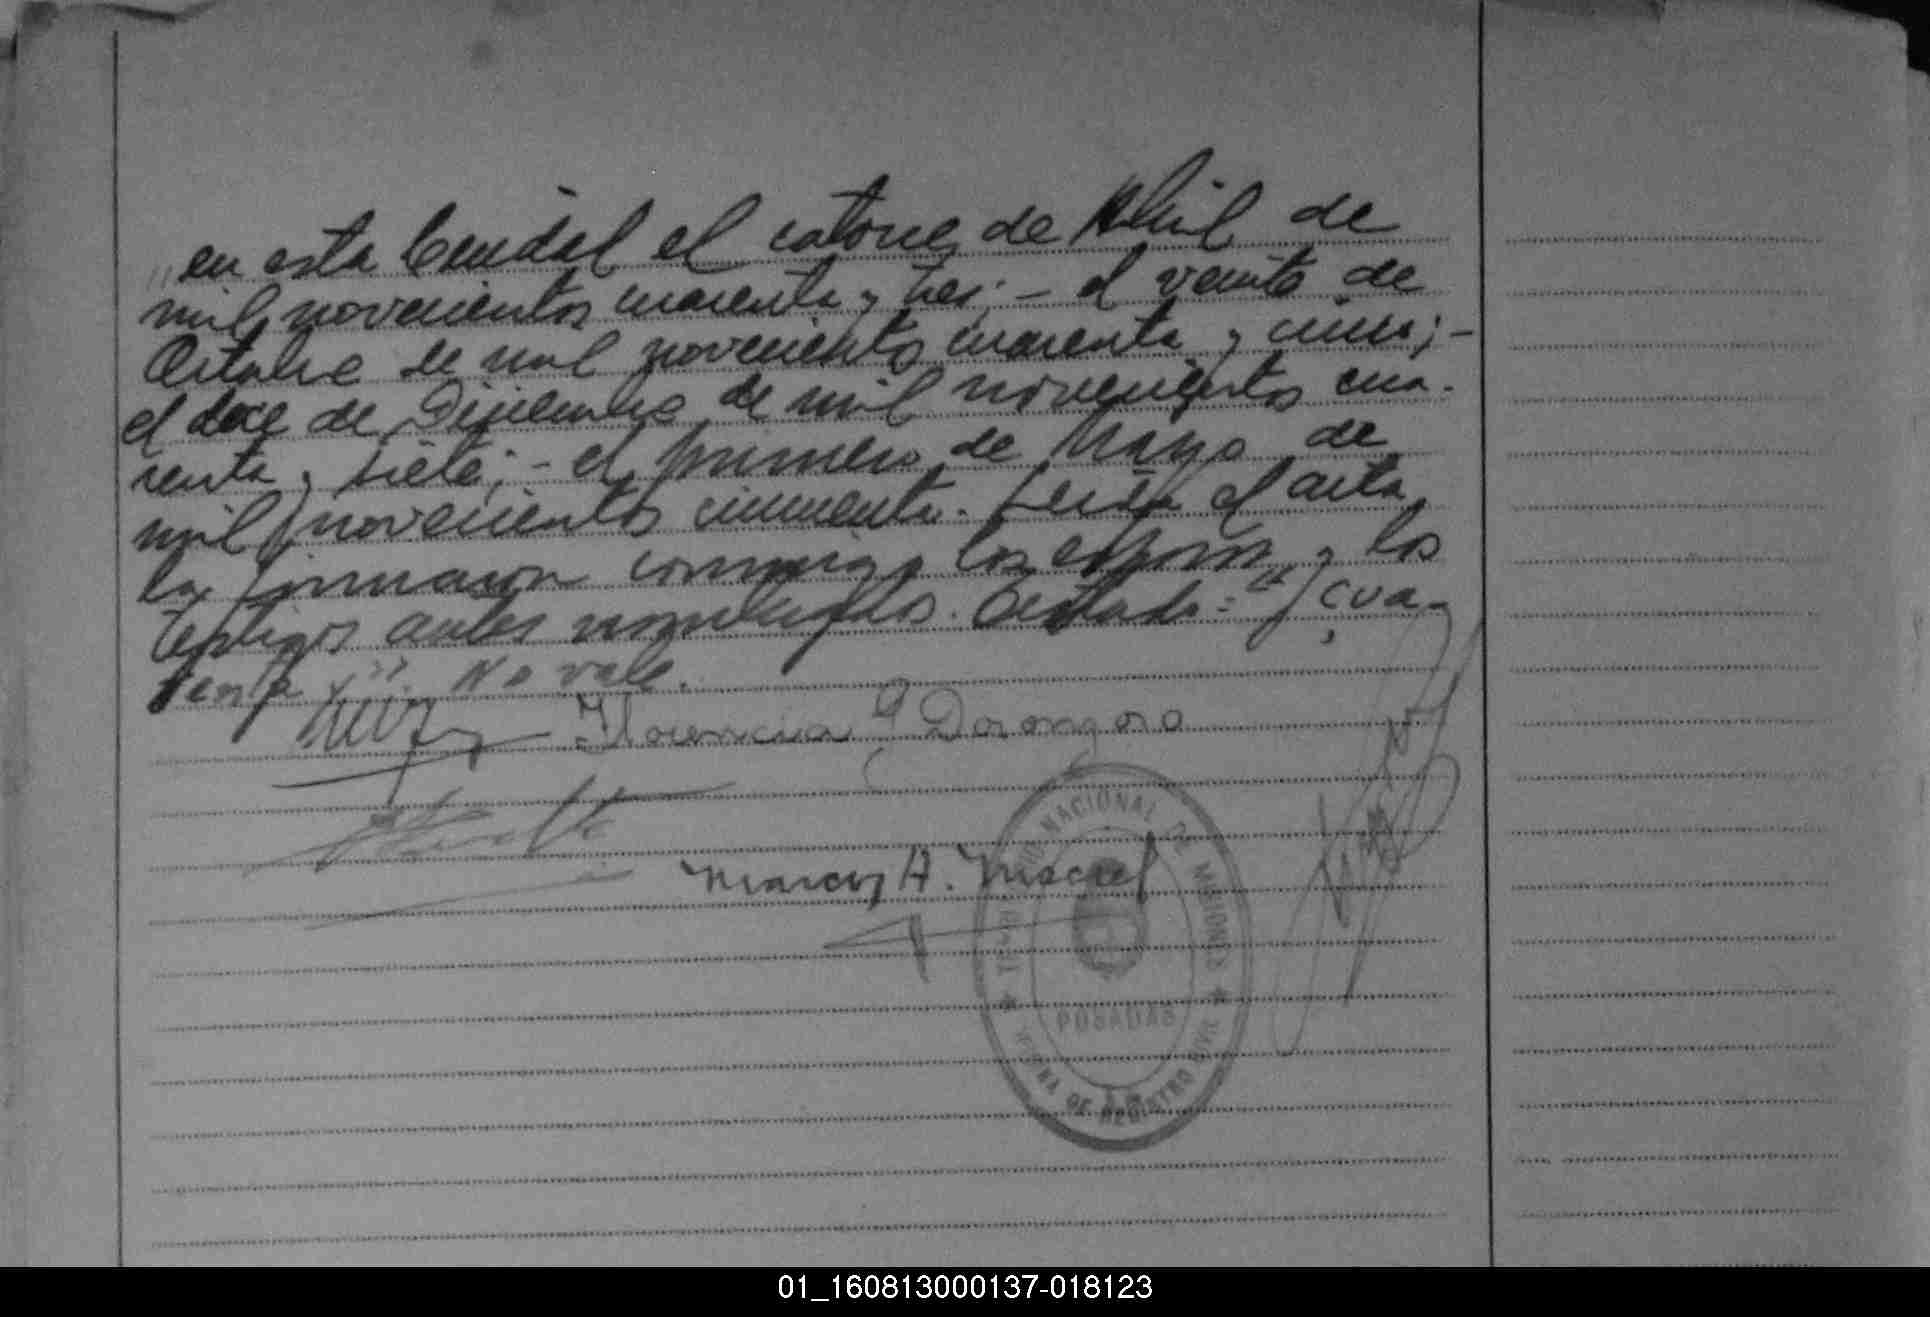 en esta Ciudad el catorce de Abril de
mil novecientos cuarenta y tres; - el veinte de
Octubre de mil novecientos cuarenta y cinco; -
el doce de Diciembre de mil novecientos cua-
renta y siete; - el primero de Mayo de
mil novecientos cincuenta. Leida el acta
la firmaron conmigo los esposos y los
testigos antes nombrados. Testado: "y cua-
renta y". No vale.
Florencia G Doronzoro
Marcos H. Maciel
TERRITORIO NACIONAL DE MISIONES
POSADAS
OFICINA DE REGISTRO CIVIL
01_160813000137-018123